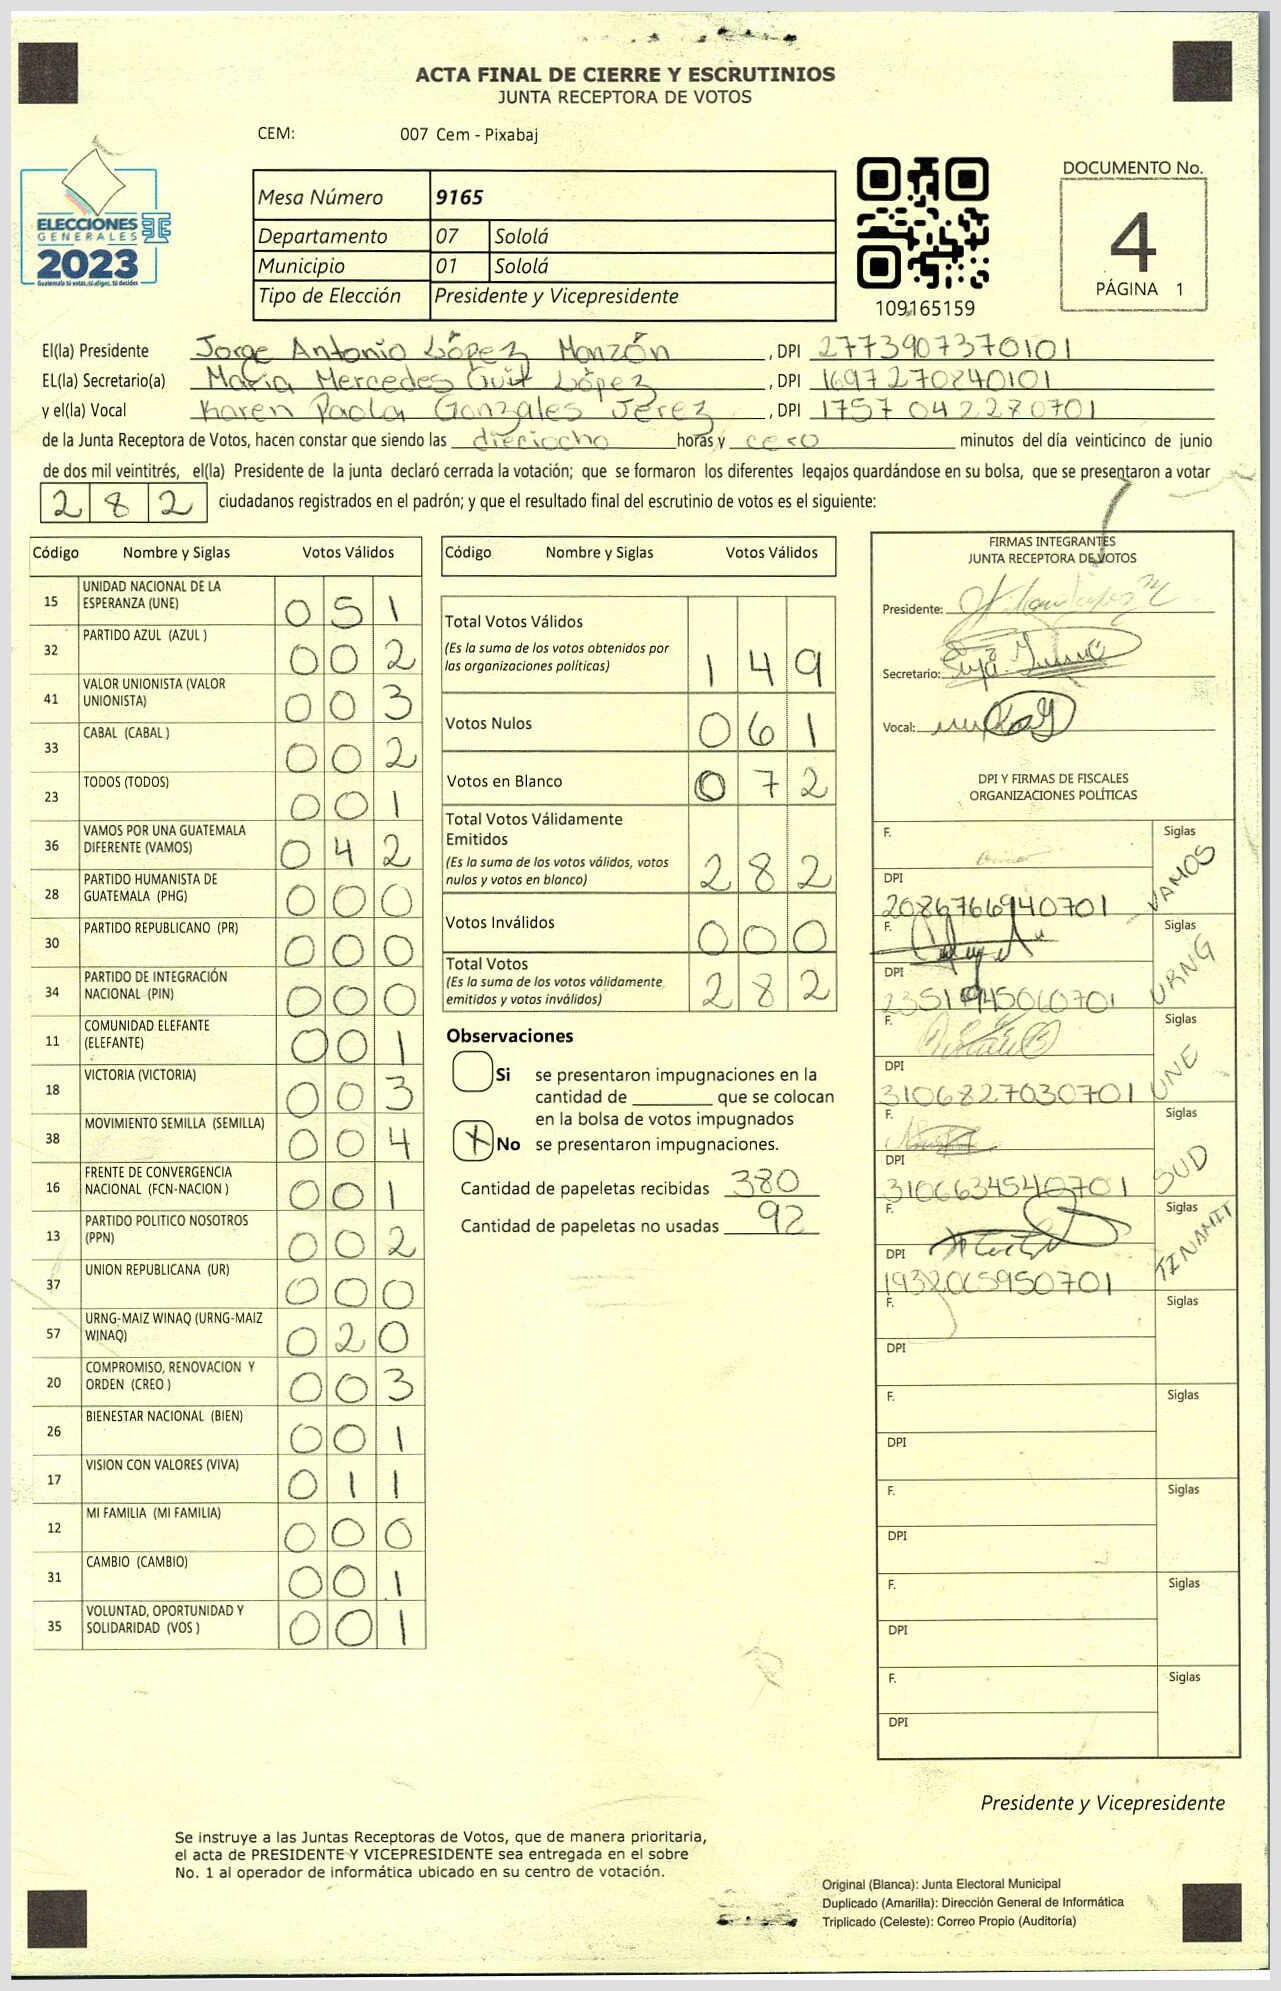 ACTA FINAL DE CIERRE Y ESCRUTINIOS
JUNTA RECEPTORA DE VOTOS
CEM: 007 Cem - Pixabaj
ELECCIONES
GENERALES
2023
Guatemala tú votas, tú eliges, tú decides
Mesa Número 9165
Departamento 07 Sololá
Municipio 01 Sololá
Tipo de Elección Presidente y Vicepresidente
109165159
DOCUMENTO No.
4
PÁGINA 1
El(la) Presidente Jorge Antonio López Monzón , DPI 2773907370101
EL(la) Secretario(a) María Mercedes Guit López , DPI 1697270840101
y el(la) Vocal Karen Paola Gonzales Jerez , DPI 1757 042270701
de la Junta Receptora de Votos, hacen constar que siendo las dieciocho horas y cero minutos del día veinticinco de junio
de dos mil veintitrés, el(la) Presidente de la junta declaró cerrada la votación; que se formaron los diferentes legajos guardándose en su bolsa, que se presentaron a votar
282 ciudadanos registrados en el padrón; y que el resultado final del escrutinio de votos es el siguiente:
Código Nombre y Siglas Votos Válidos
15 UNIDAD NACIONAL DE LA ESPERANZA (UNE) 051
32 PARTIDO AZUL (AZUL ) 002
41 VALOR UNIONISTA (VALOR UNIONISTA) 003
33 CABAL (CABAL ) 002
23 TODOS (TODOS) 001
36 VAMOS POR UNA GUATEMALA DIFERENTE (VAMOS) 042
28 PARTIDO HUMANISTA DE GUATEMALA (PHG) 000
30 PARTIDO REPUBLICANO (PR) 000
34 PARTIDO DE INTEGRACIÓN NACIONAL (PIN) 000
11 COMUNIDAD ELEFANTE (ELEFANTE) 001
18 VICTORIA (VICTORIA) 003
38 MOVIMIENTO SEMILLA (SEMILLA) 004
16 FRENTE DE CONVERGENCIA NACIONAL (FCN-NACION ) 001
13 PARTIDO POLITICO NOSOTROS (PPN) 002
37 UNION REPUBLICANA (UR) 000
57 URNG-MAIZ WINAQ (URNG-MAIZ WINAQ) 020
20 COMPROMISO, RENOVACION Y ORDEN (CREO ) 003
26 BIENESTAR NACIONAL (BIEN) 001
17 VISION CON VALORES (VIVA) 011
12 MI FAMILIA (MI FAMILIA) 000
31 CAMBIO (CAMBIO) 001
35 VOLUNTAD, OPORTUNIDAD Y SOLIDARIDAD (VOS ) 001
Código Nombre y Siglas Votos Válidos
Total Votos Válidos 149
(Es la suma de los votos obtenidos por
las organizaciones políticas)
Votos Nulos 061
Votos en Blanco 072
Total Votos Válidamente
Emitidos 282
(Es la suma de los votos válidos, votos
nulos y votos en blanco)
Votos Inválidos 000
Total Votos 282
(Es la suma de los votos válidamente
emitidos y votos inválidos)
Observaciones
Si se presentaron impugnaciones en la
cantidad de ________ que se colocan
en la bolsa de votos impugnados
X No se presentaron impugnaciones.
Cantidad de papeletas recibidas 380
Cantidad de papeletas no usadas 92
FIRMAS INTEGRANTES
JUNTA RECEPTORA DE VOTOS
Presidente:
Secretario:
Vocal:
DPI Y FIRMAS DE FISCALES
ORGANIZACIONES POLÍTICAS
F. Siglas VAMOS
DPI 2086766940701
F. Siglas URNG
DPI 2351945060701
F. Siglas UNE
DPI 3106827030701
F. Siglas SUD
DPI 3106634540701
F. Siglas TINAMIT
DPI 1932065950701
F. Siglas
DPI
F. Siglas
DPI
F. Siglas
DPI
F. Siglas
DPI
F. Siglas
DPI
Presidente y Vicepresidente
Se instruye a las Juntas Receptoras de Votos, que de manera prioritaria,
el acta de PRESIDENTE Y VICEPRESIDENTE sea entregada en el sobre
No. 1 al operador de informática ubicado en su centro de votación.
Original (Blanca): Junta Electoral Municipal
Duplicado (Amarilla): Dirección General de Informática
Triplicado (Celeste): Correo Propio (Auditoría)